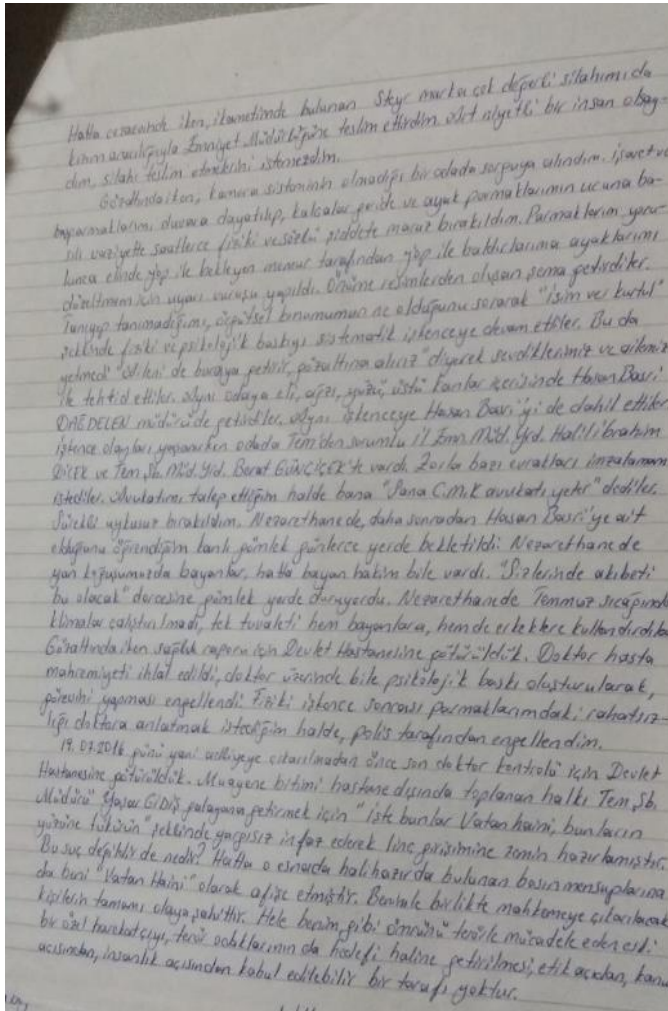 Hatta cezaevinde iken, ikametimde bulunan Steyr marka çok değerli silahımı da
kızım aracılığıyla Emniyet Müdürlüğüne teslim ettirdim. Art niyetli bir insan olsay-
dım, silahı teslim etmelerini istemezdim.
Gözaltında iken, kamera sisteminin olmadığı bir odada sorguya alındım. İşaret ve
başparmaklarım, duvara dayatılıp, kalçalar geride ve ayak parmaklarımın ucuna ba-
sılı vaziyette saatlerce fiziki ve sözlü şiddete maruz bırakıldım. Parmaklarım yoru-
lunca elinde jop ile bekleyen memur tarafından jop ile baldırlarıma ayaklarımı
düzeltmem için uyarı vuruşu yapıldı. Önüme resimlerden oluşan şema getirdiler.
Tanıyıp tanımadığımı, örgütsel konumumun ne olduğunu sorarak "isim ver kurtul"
şeklinde fiziki ve psikolojik baskıyı sistematik işkenceye devam ettiler. Bu da
yetmedi "aileni de buraya getirir, gözaltına alırız" diyerek sevdiklerimiz ve ailemiz
ile tehdid ettiler. Aynı odaya eli, ağzı, yüzü, üstü kanlar içerisinde Hasan Basri
DAĞDELEN müdürü de getirdiler. Aynı işkenceye Hasan Basri'yi de dahil ettiler
işkence olayları yaşanırken odada Tem'den sorumlu il Emn. Müd. Yrd. Halil ibrahim
ve Tem Şb. Müd. Yrd. Berat GÜNÇİÇEK'te vardı. Zorla bazı evrakları imzalamam
istediler. Avukatımı talep ettiğim halde bana "Sana C.M.K avukatı yeter" dediler.
Sürekli uykusuz bırakıldım. Nezarethanede, daha sonradan Hasan Basri'ye ait
olduğunu öğrendiğim kanlı gömlek günlerce yerde bekletildi. Nezarethanede
yan koğuşumuzda bayanlar, hatta bayan hakim bile vardı. "Sizlerinde akıbeti
bu olacak" dercesine gömlek yerde duruyordu. Nezarethanede Temmuz sıcağında
klimalar çalıştırılmadı, tek tuvaleti hem bayanlara, hemde erkeklere kullandırdılar
Gözaltında iken sağlık raporu için Devlet Hastanesine götürüldük. Doktor hasta
mahremiyeti ihlal edildi, doktor üzerinde bile psikolojik baskı oluşturularak,
görevini yapması engellendi. Fiziki işkence sonrası parmaklarımdaki rahatsız-
lığı doktora anlatmak istediğim halde, polis tarafından engellendim.
19.07.2016 günü yani adliyeye çıkarılmadan önce son doktor kontrolü için Devlet
Hastanesine götürüldük. Muayene bitimi hastane dışında toplanan halkı Tem Şb.
Müdürü Yaşar GİDİŞ galeyana getirmek için "işte bunlar Vatan haini, bunların
yüzüne tükürün" şeklinde yargısız infaz ederek linç girişimine zemin hazırlamıştır.
Bu suç değildir de nedir? Hatta o esnada halihazırda bulunan basın mensuplarına
da beni "Vatan Haini" olarak afişe etmiştir. Benimle birlikte mahkemeye çıkarılacak
kişilerin tamamı olaya şahittir. Hele benim gibi ömrünü terörle mücadele eden eski
bir özel harekatçıyı, terör odaklarının da hedefi haline getirilmesi, etik açıdan, kanun
açısından, insanlık açısından kabul edilebilir bir tarafı yoktur.